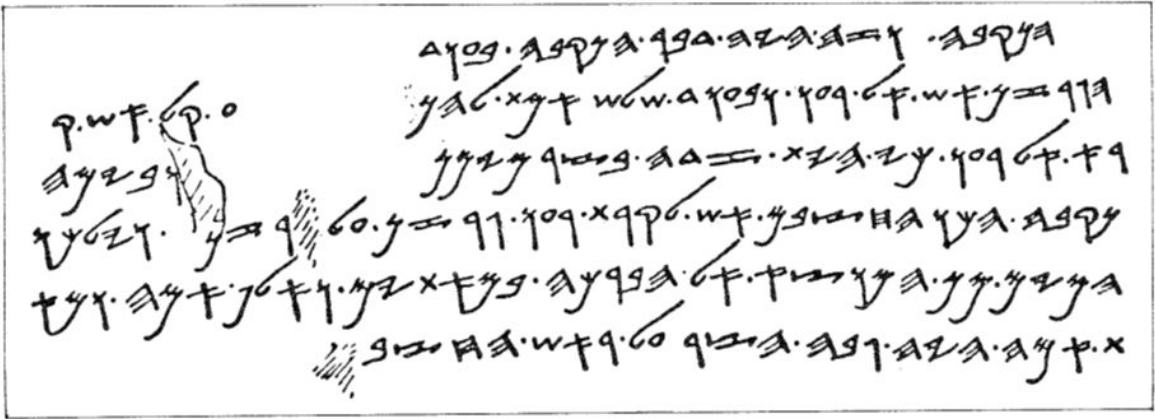 𐤄𐤍𐤒𐤁𐤄 . 𐤅𐤆𐤄 . 𐤄𐤉𐤄 . 𐤃𐤁𐤓 . 𐤄𐤍𐤒𐤁𐤄 . 𐤁𐤏𐤅𐤃
𐤄𐤂𐤓𐤆𐤍 . 𐤀𐤔 . 𐤀𐤋 . 𐤓𐤏𐤅 . 𐤅𐤁𐤏𐤅𐤃 . 𐤔𐤋𐤔 𐤀𐤌𐤕 . 𐤋𐤄𐤍 𐤏 . 𐤒𐤋 . 𐤀𐤔 . 𐤒
𐤓𐤀 . 𐤀𐤋 𐤓𐤏𐤅 . 𐤊𐤉 . 𐤄𐤉𐤕 . 𐤆𐤃𐤄 . 𐤁𐤑𐤓 𐤌𐤉𐤌𐤍 𐤅 𐤁𐤉𐤌 𐤄
𐤍𐤒𐤁𐤄 . 𐤄𐤊𐤅 𐤄𐤇𐤑𐤁𐤌 . 𐤀𐤔 . 𐤋𐤒𐤓𐤕 . 𐤓𐤏𐤅 . 𐤂𐤓𐤆𐤍 . 𐤏𐤋 𐤓𐤆𐤍 . 𐤅𐤉𐤋𐤊𐤅
𐤄𐤌𐤉𐤌 . 𐤌𐤍 . 𐤄𐤌𐤅𐤑𐤀 . 𐤀𐤋 . 𐤄𐤁𐤓𐤊𐤄 . 𐤁𐤌𐤀𐤕𐤉𐤌 . 𐤅𐤀𐤋𐤐 . 𐤀𐤌𐤄 . 𐤅𐤌𐤀
𐤕 . 𐤀𐤌𐤄 . 𐤄𐤉𐤄 . 𐤂𐤁𐤄 . 𐤄𐤑𐤓 𐤏𐤋 . 𐤓𐤀𐤔 . 𐤄𐤇𐤑𐤁